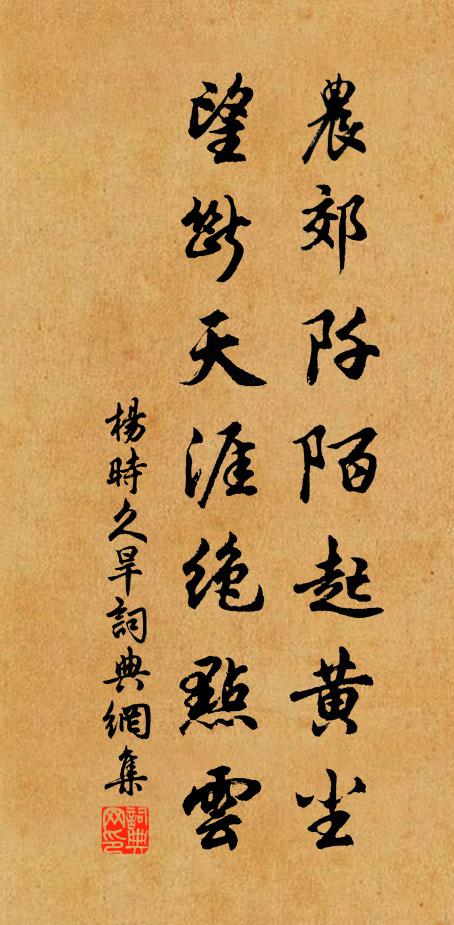 農郊阡陌起黄尘
望斷天涯絶點雲
楊時久旱詞典網集
詞典网印